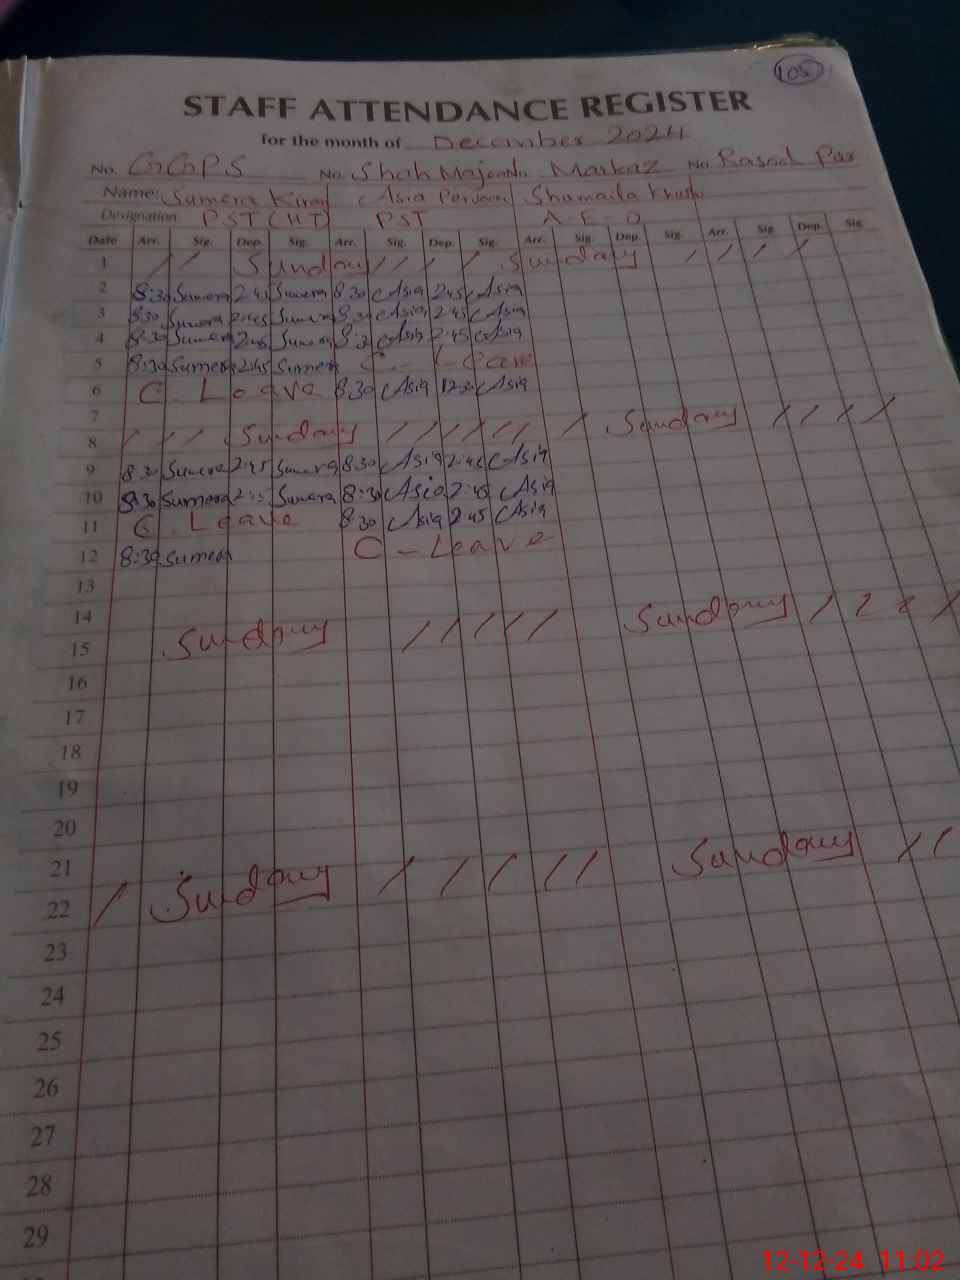 105
STAFF ATTENDANCE REGISTER
for the month of December 2024
No. GGPS No. Shah Majeedu Markaz No. Rasool Par
Name: Sumera Kiran Asia Perveen Shumaila Khush
Designation PST (HT) PST A-E-O
Date Arr. Sig. Dep. Sig. Arr. Sig. Dep. Sig. Arr. Sig. Dep. Sig. Arr. Sig. Dep. Sig.
1 / / Sunday / / / / Sunday / / / /
2 8:30 Sumera 2:45 Sumera 8:30 Asia 2:45 Asia
3 8:30 Sumera 2:45 Sumera 8:30 Asia 2:45 Asia
4 8:30 Sumera 2:45 Sumera 8:3 Asia 2:45 Asia
5 8:30 Sumera 2:45 Sumera C - Leave
6 C. Leave 8:30 Asia 12:30 Asia
7
8 / / / Sunday / / / / / / / Sunday / / / /
9 8:30 Sumera 2:45 Sumera 8:30 Asia 2:45 Asia
10 8:30 Sumera Sumera 8:30 Asia 2:45 Asia
11 C. Leave 8:30 Asia 2:45 Asia
12 8:30 Sumera C - Leave
13
14
15 Sunday / / / / / Sunday / / / /
16
17
18
19
20
21
22 / Sunday / / / / / Sunday / /
23
24
25
26
27
28
29
12-12-24 11:02